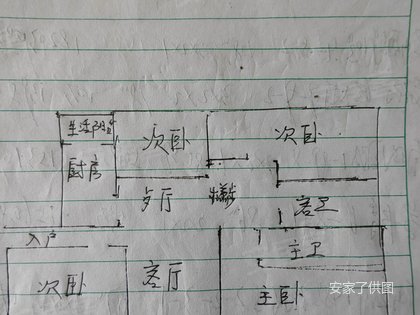 生活阳台
次卧
次卧
厨房
歺厅
楼梯
客卫
入户
主卫
次卧
客厅
主卧
安家了供图